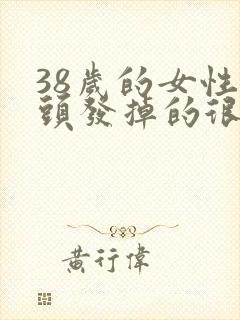 38歲的女性
頭發掉的很
黃行偉